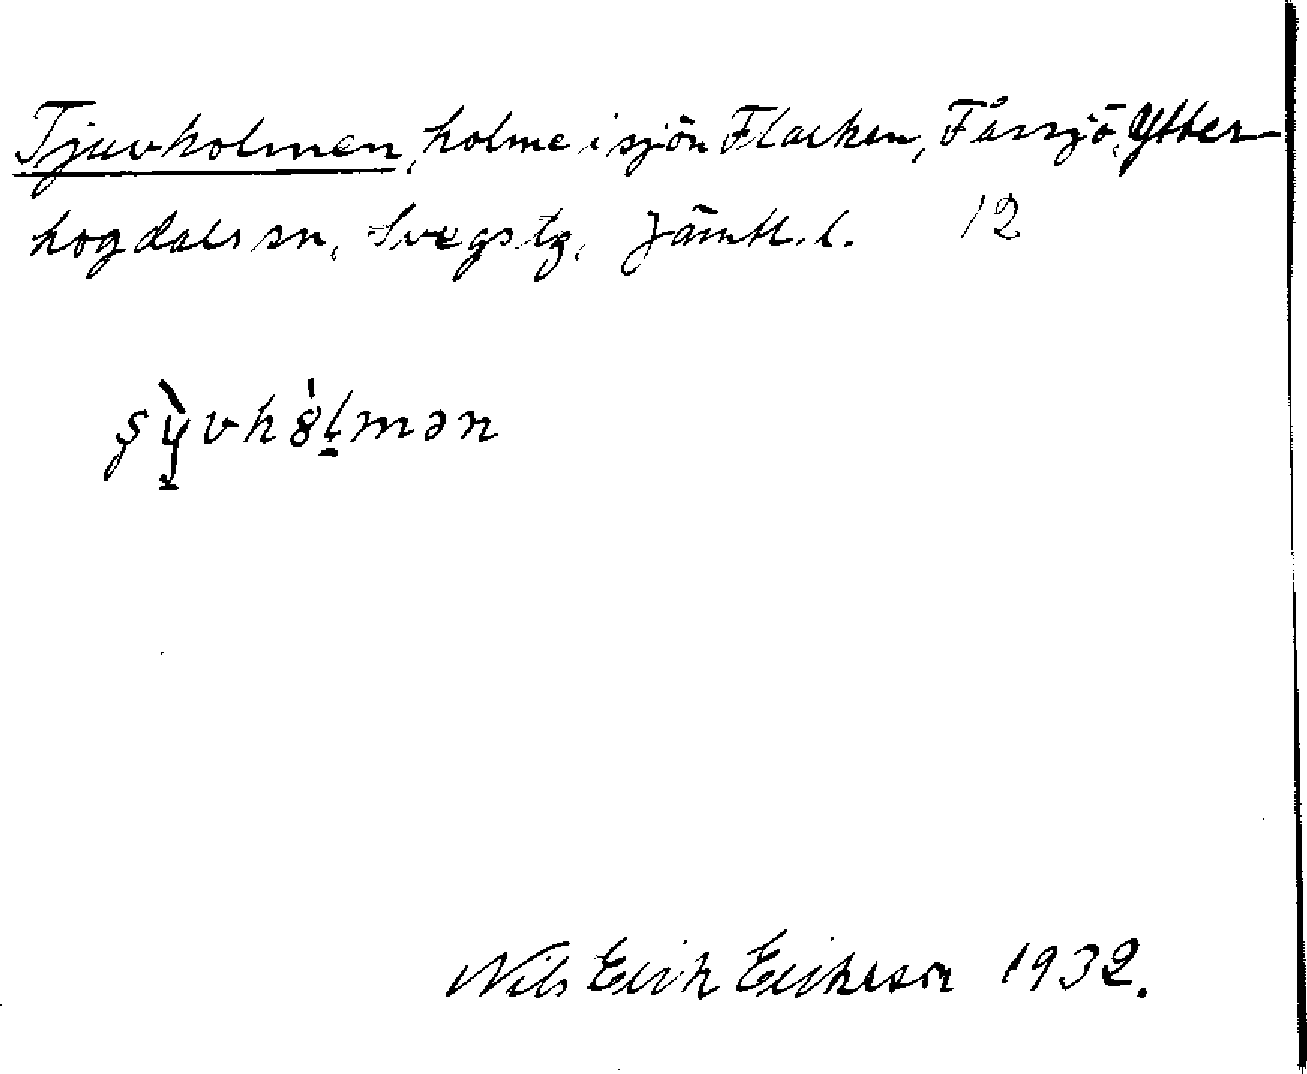 Tjuvholmen, holme i sjön Flarken, Fåssjö, Ytter-
hogdals sn, Svegs tg, Jämtl. l. 12
Nils Erik Erikson 1932.